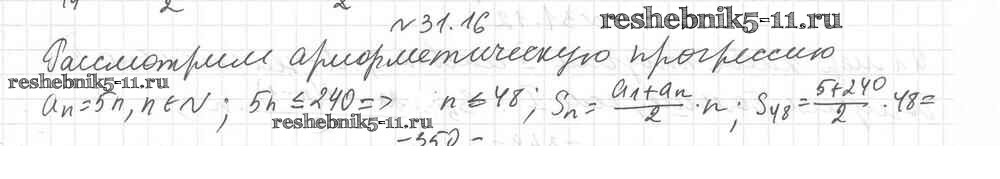 №31.16
reshebnik5-11.ru
Рассмотрим арифметическую прогрессию
reshebnik5-11.ru
aₙ=5n, n∈N; 5n ≤ 240 => n ≤ 48; Sₙ = (a₁+aₙ)/2 · n; S₄₈ = (5+240)/2 · 48 =
reshebnik5-11.ru